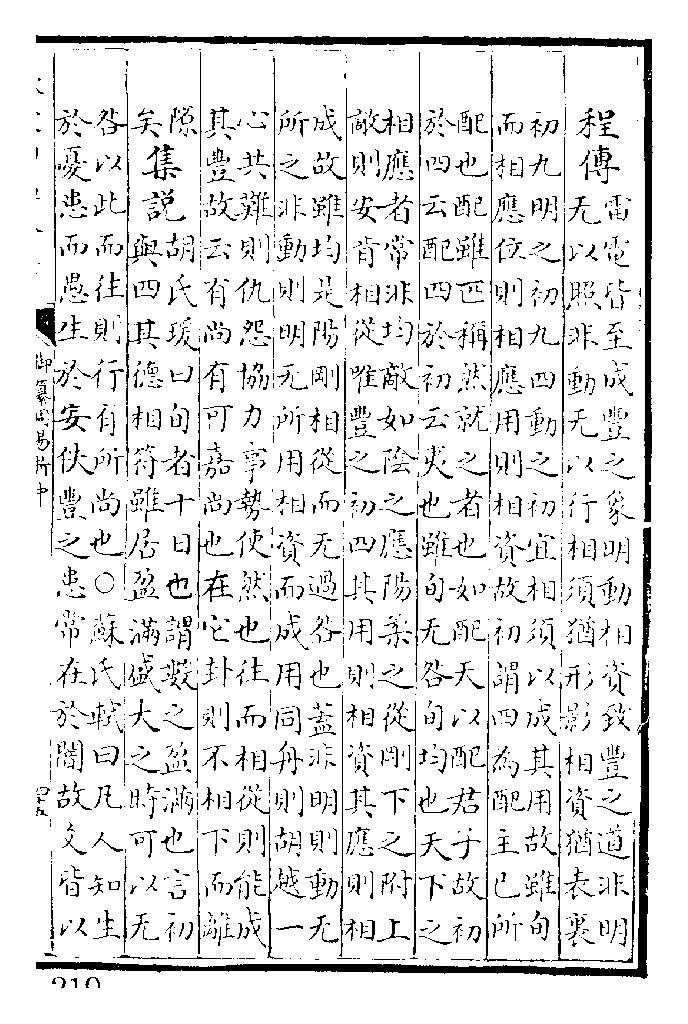 程傳
雷電皆至成豐之象明動相資致豐之道非明
无以照非動无以行相須猶形影相資猶表裏
初九明之初九四動之初宜相須以成其用故雖旬
而相應位則相應用則相資故初謂四為配主已所
配也配雖匹稱然就之者也如配天以配君子故初
於四云配四於初云夷也雖旬无咎旬均也天下之
相應者常非均敵如陰之應陽柔之從剛下之附上
敵則安肯相從唯豐之初四其用則相資其應則相
成故雖均是陽剛相從而无過咎也蓋非明則動无
所之非動則明无所用相資而成用同舟則胡越一
心共難則仇怨協力事勢使然也往而相從則能成
其豐故云有尚有可嘉尚也在它卦則不相下而離
隙
矣
集説
胡氏瑗曰旬者十日也謂數之盈滿也言初
與四其德相符雖居盈滿盛大之時可以无
咎以此而往則行有所尚也○蘇氏軾曰凡人知生
於憂患而愚生於安佚豐之患常在於闇故爻皆以
御纂周易折中
210